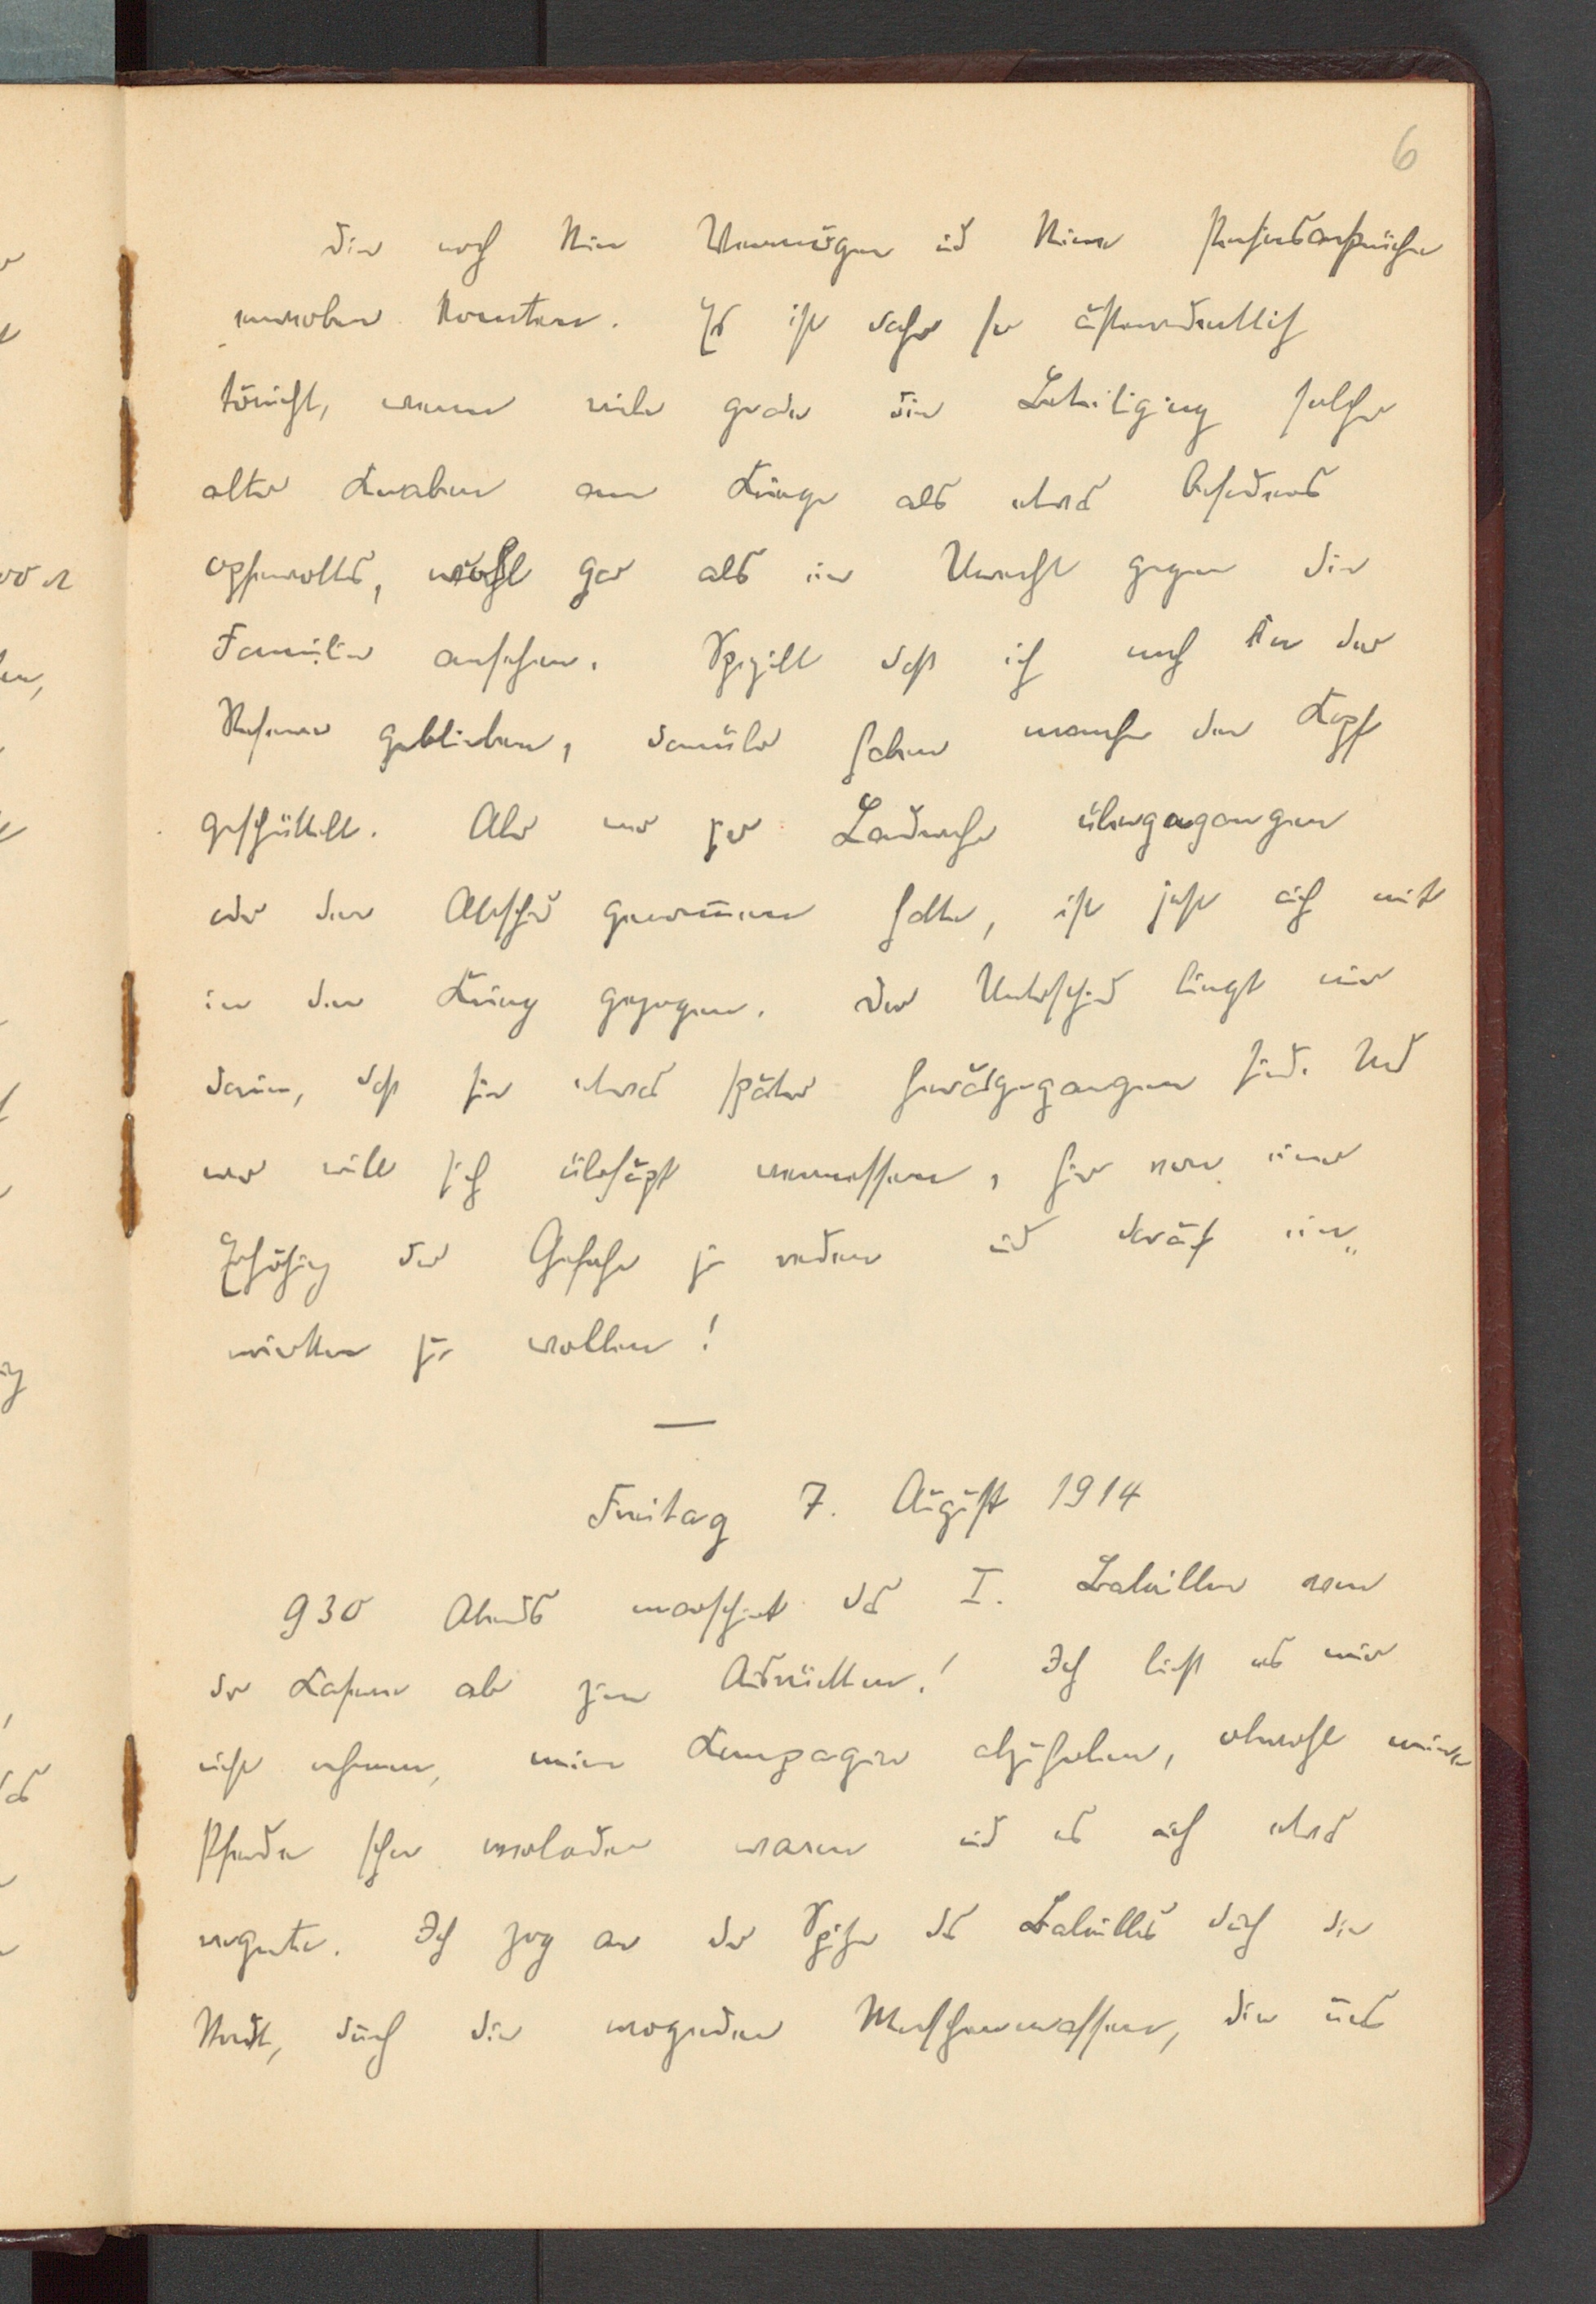 6
die noch kein Vermögen und keine Ruhestandsansprüche
erworben konnten. Es ist daher so außerordentlich
töricht, wenn viele grade die Beteiligung solcher
alter Knaben am Kriege als etwas besonders
opfervolles, wohl gar als ein Unrecht gegen die
Familie ansehen. Speziell daß ich noch in der
Reserve geblieben, darüber haben manche den Kopf
geschüttelt. Aber wer zur Landwehr übergegangen
oder den Abschied genommen hatte, ist jetzt auch mit
in den Krieg gezogen. Der Unterschied liegt nur
darin, daß sie etwas später herausgegangen sind. Und
wer will sich überhaupt vermessen, hier von einer
Erhöhung der Gefahr zu reden und darauf ein„
wirken zu wollen!
—
Freitag 7. August 1914
930 Abends marschiert das I. Bataillon von
der Kaserne ab zum Ausrücken! Ich ließ es mir
nicht nehmen, meine Kompagnie abzuholen, obwohl meine
Pferde schon verladen waren und es auch etwas
regnete. Ich zog an der Spitze des Bataillons durch die
Stadt, durch die wogenden Menschenmassen, die uns